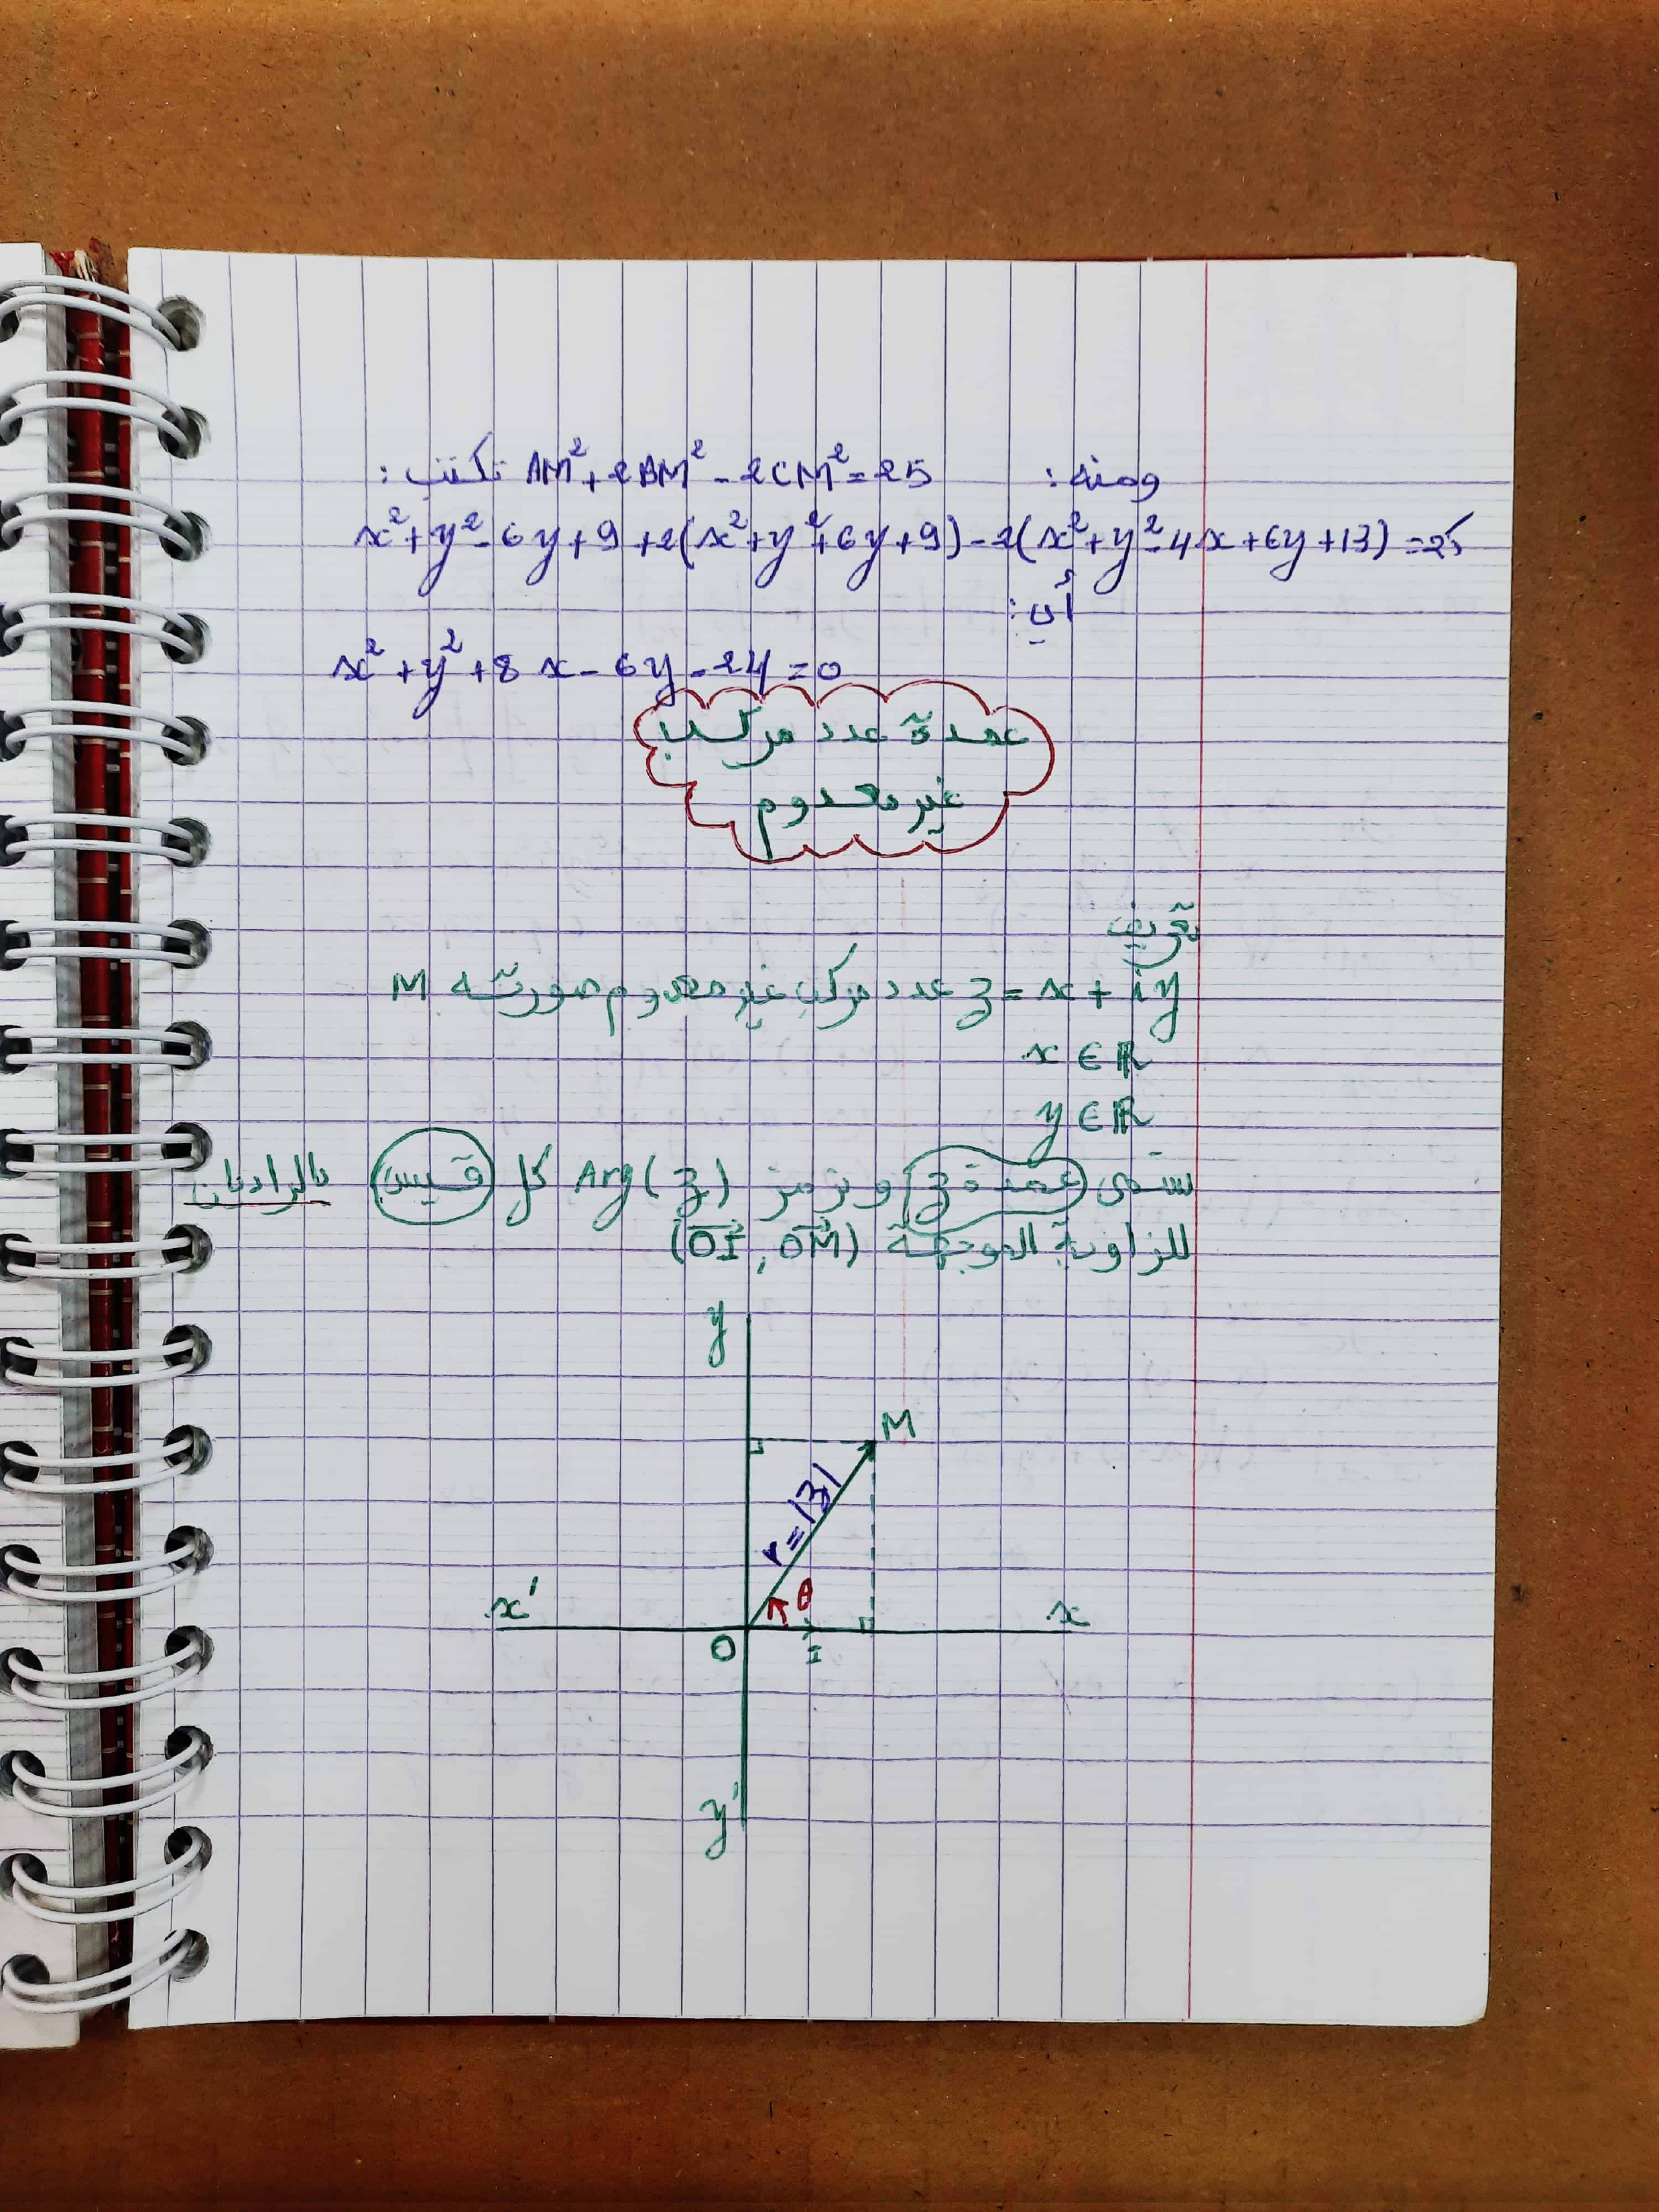 ومنه: AM²+2BM²-2CM²=25 تكتب:
x²+y²-6y+9+2(x²+y²+6y+9)-2(x²+y²-4x+6y+13)=25
أي:
x²+y²+8x-6y-24=0
عمدة عدد مركب
غير معدوم
تعريف
z=x+iy عدد مركب غير معدوم صورته M
x∈ℝ
y∈ℝ
تسمى عمدة z ونرمز Arg(z) كل قيس بالراديان
للزاوية الموجهة (OI→, OM→)
y
M
r=|z|
θ
x'
x
O
I
y'